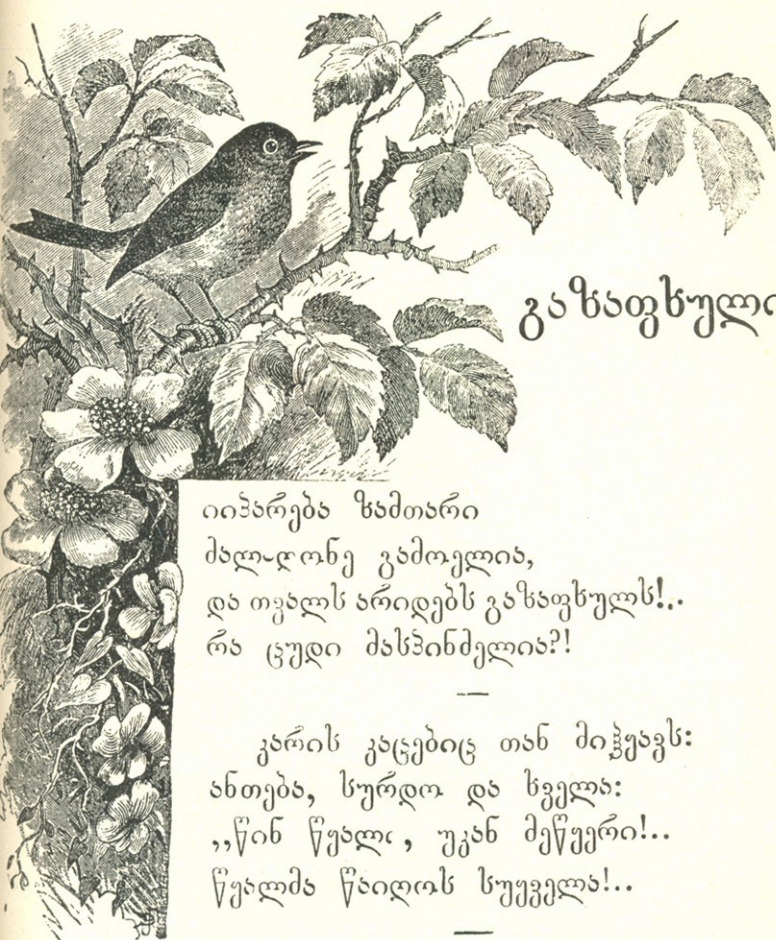 გაზაფხული
იიპარება ზამთარი
მალ-ღონე გამოელია,
და თვალს არიდებს გაზაფხულს!..
რა ცუდი მასპინძელია?!
კარის კაცებიც თან მიჰყავს:
ანთება, სურდო და ხველა:
„წინ წყალი, უკან მეწყერი!..
წყალმა წაიღოს სუყველა!..